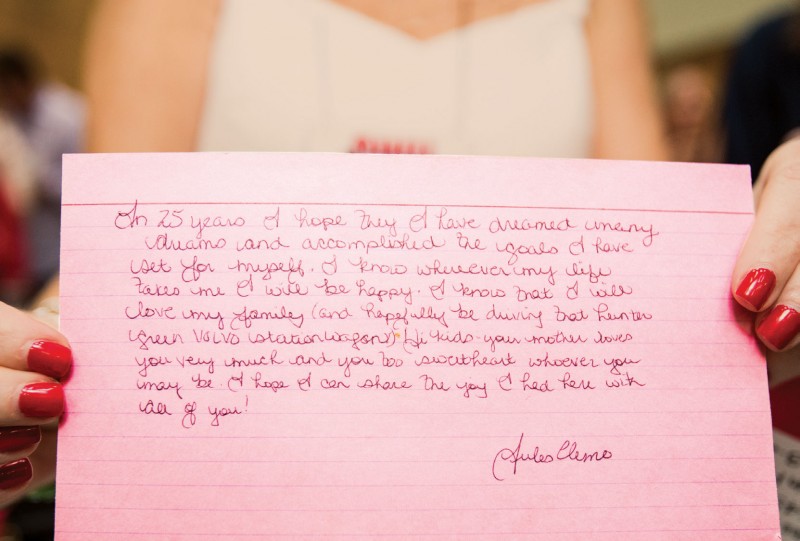 In 25 years I hope they I have dreamed many
dreams and accomplished the goals I have
set for myself. I know wherever my life
takes me I will be happy. I know that I will
love my family (and hopefully be driving that hunter
green VOLVO stationwagon) Hi kids-your mother loves
you very much and you too sweetheart whoever you
may be. I hope I can share the joy I had here with
all of you!
Jules Clemo